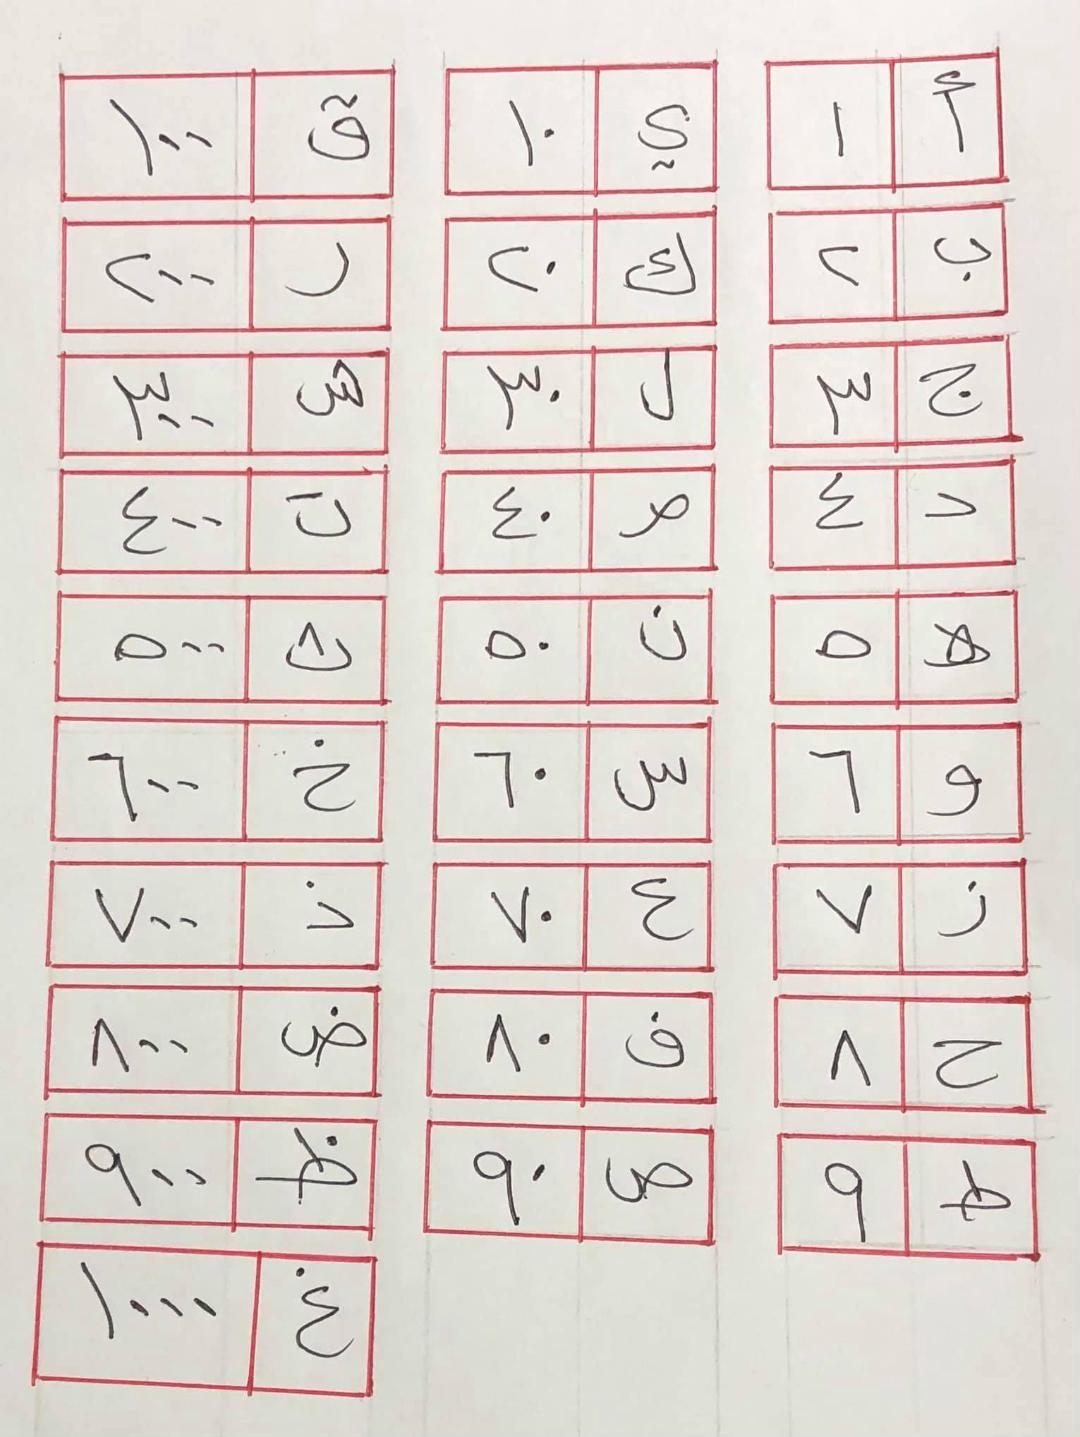 أ ١ ي ١٠ ق ١٠٠
ب ٢ ك ٢٠ ر ٢٠٠
ج ٣ ل ٣٠ ش ٣٠٠
د ٤ م ٤٠ ت ٤٠٠
ه ٥ ن ٥٠ ث ٥٠٠
و ٦ س ٦٠ خ ٦٠٠
ز ٧ ع ٧٠ ذ ٧٠٠
ح ٨ ف ٨٠ ض ٨٠٠
ط ٩ ص ٩٠ ظ ٩٠٠
غ ١٠٠٠